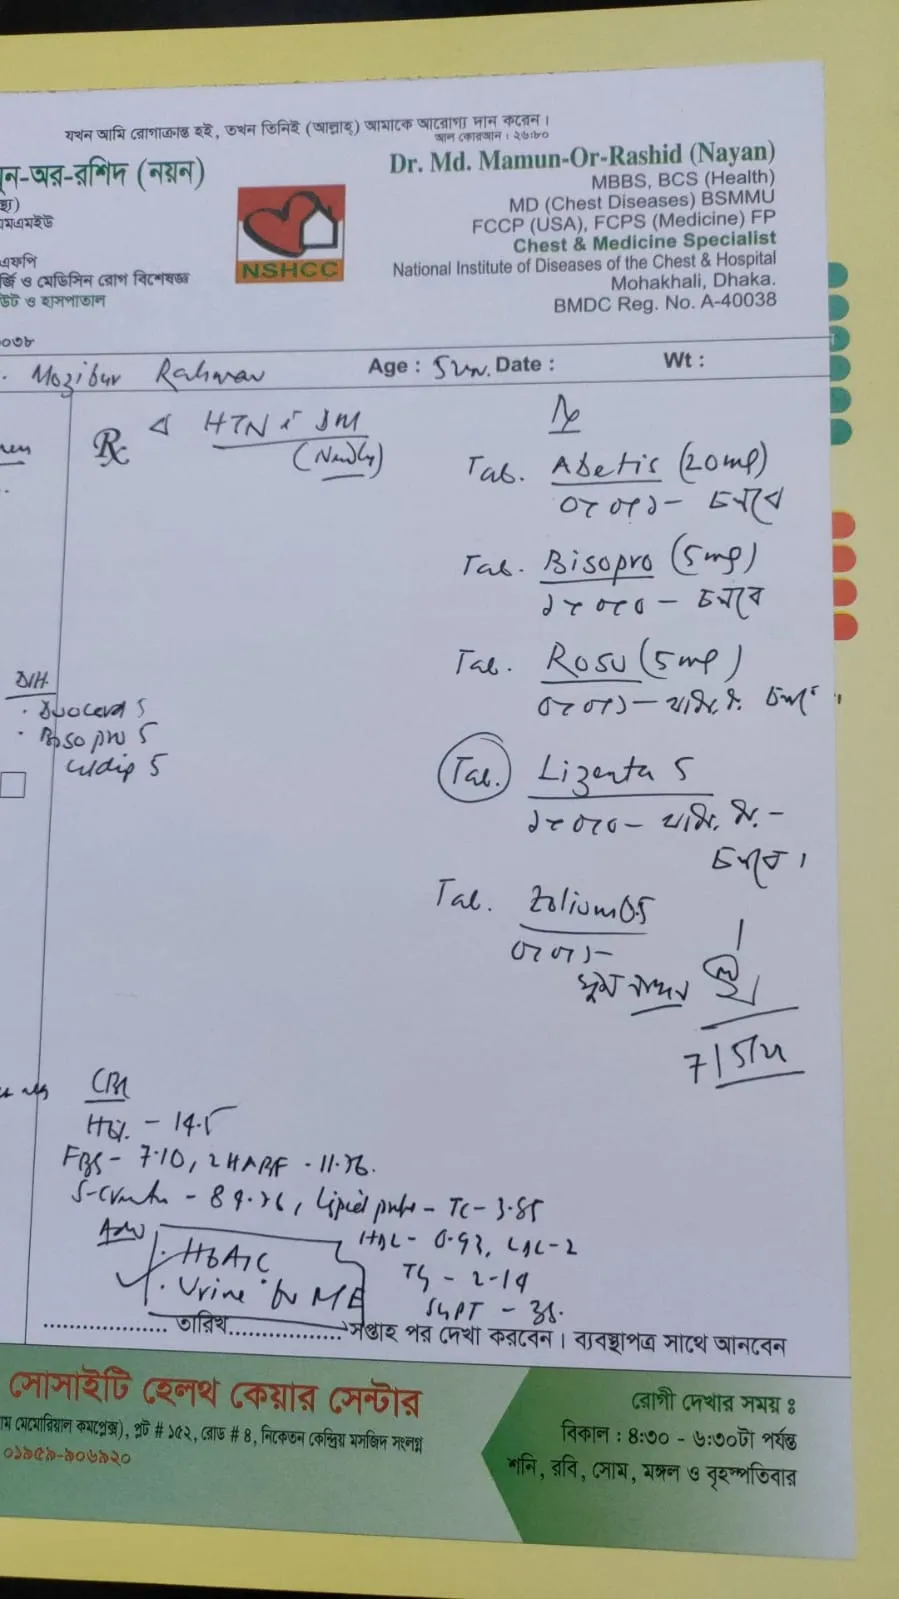 যখন আমি রোগাক্রান্ত হই, তখন তিনিই (আল্লাহ) আমাকে আরোগ্য দান করেন।
আল কোরআন : ২৬:৮০
ূন-অর-রশিদ (নয়ন)
এমএমইউ
এফপি
র্জি ও মেডিসিন রোগ বিশেষজ্ঞ
উট ও হাসপাতাল
০৩৮
NSHCC
Dr. Md. Mamun-Or-Rashid (Nayan)
MBBS, BCS (Health)
MD (Chest Diseases) BSMMU
FCCP (USA), FCPS (Medicine) FP
Chest & Medicine Specialist
National Institute of Diseases of the Chest & Hospital
Mohakhali, Dhaka.
BMDC Reg. No. A-40038
Mozibur Rahman Age : Date : Wt :
Rx HTN DM
(Newly)
D/H.
Bisopro 5
5
Rx
Tab. Abetis (20mg)
০+০+১ - চলবে
Tab. Bisopro (5mg)
১+০+০ - চলবে
Tab. Rosu (5mg)
০+০+১ -
Tab. Lizenta 5
১+০+০ -
চলবে।
Tab. Zolium 0.5
০+০+১ -
ঘুম
CBC
Hb%. - 14.5
FBS - 7.10, 2HABF - 11.76.
Lipid TC - 3.85
HDL - 0.93, LDL - 2
TG - 2.14
SGPT - 38.
Adv
. HbA1C
. Urine for R/M/E
.................. তারিখ..................সপ্তাহ পর দেখা করবেন। ব্যবস্থাপত্র সাথে আনবেন
সোসাইটি হেলথ কেয়ার সেন্টার
ম মেমোরিয়াল কমপ্লেক্স), প্লট # ১৫২, রোড # ৪, নিকেতন কেন্দ্রিয় মসজিদ সংলগ্ন
০১৯৫৯-৯০৬৯২০
রোগী দেখার সময় :
বিকাল : ৪:৩০ - ৬:৩০টা পর্যন্ত
শনি, রবি, সোম, মঙ্গল ও বৃহস্পতিবার